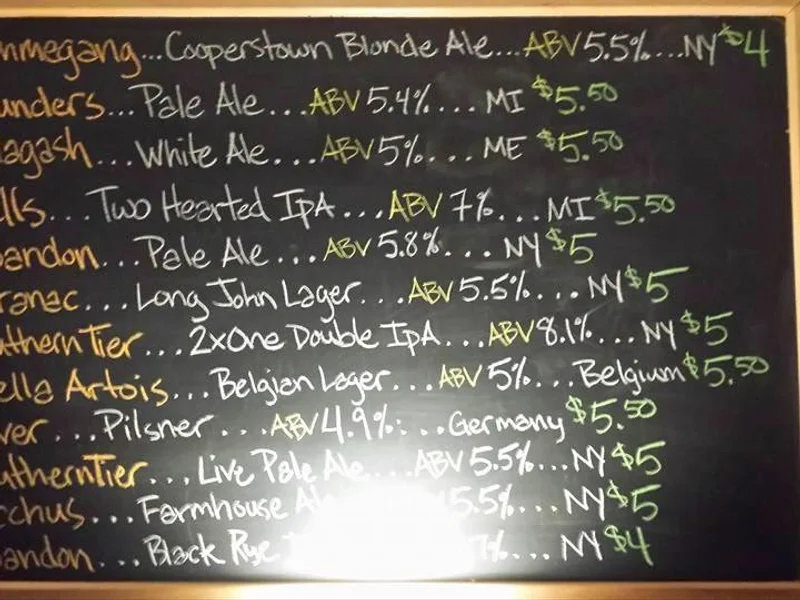 mmegang...Cooperstown Blonde Ale...ABV 5.5%...NY $4
unders...Pale Ale...ABV 5.4%...MI $5.50
agash...White Ale...ABV 5%...ME $5.50
lls...Two Hearted IPA...ABV 7%...MI $5.50
andon...Pale Ale...ABV 5.8%...NY $5
ranac...Long John Lager...ABV 5.5%...NY $5
uthern Tier...2xOne Double IPA...ABV 8.1%...NY $5
ella Artois...Belgian Lager...ABV 5%...Belgium $5.50
ver...Pilsner...ABV 4.9%...Germany $5.50
uthern Tier...Live Pale Ale...ABV 5.5%...NY $5
cchus...Farmhouse Ale 5.5%...NY $5
andon...Black Rye 7%...NY $4